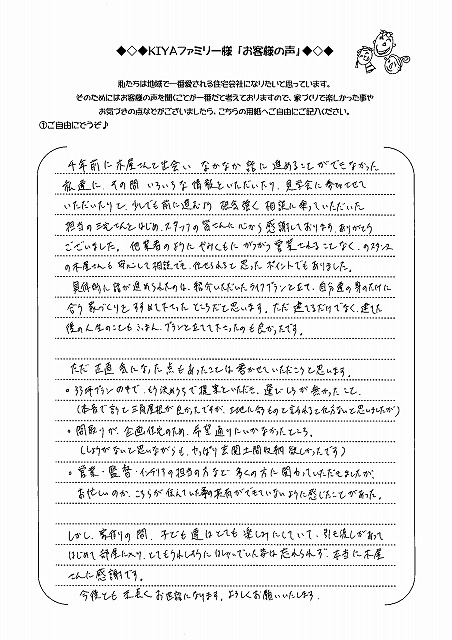 ◆◇◆KIYAファミリー様「お客様の声」◆◇◆
私たちは地域で一番愛される住宅会社になりたいと思っています。
そのためにはお客様の声を聞くことが一番だと考えておりますので、家づくりで楽しかった事や
お気づきの点などがございましたら、こちらの用紙へご自由にご記入ください。
①ご自由にどうぞ♪
4年前に木屋さんと出会い なかなか話に進めることができなかった
私達に、その間 いろいろな情報をいただいたり、見学会に参加させて
いただいたりと、少しでも前に進むよう 根気強く 相談に乗っていただいた
担当の三宅さんをはじめ、スタッフの皆さんに心から感謝しております。ありがとう
ございました。他業者のように やみくもに がつがつ営業されることなく、のスタンス
の木屋さんも 安心して相談でき、任せられると思ったポイントでもありました。
具体的に話が進められたのは、紹介いただいたライフプランを立て、自分達の身のたけに
合う家づくりを すすめて下さった ところだと思います。ただ 建てるだけでなく、建てた
後の人生のことも ふまえ、プランを立てて下さったのも良かったです。
ただ 正直 気になった点もあったことは 書かせていただこうと思います。
・33坪プランの中で、もう決めうちで提案といただき、選びしろが無かったこと。
(本音で言うと三角屋根が良かったですが、土地に合うものと言われると仕方ないと思いましたが)
・間取りが、企画住宅のため、希望通りにいかなかったところ。
(しょうがないと思いながらも、やっぱり玄関土間収納 欲しかったです)
・営業・監督・インテリアの担当の方など 多くの方に関わっていただきましたが、
お忙しいのか、こちらが伝えていた事の共有ができていないように感じたことがあった。
しかし、家作りの間、子ども達はとても楽しみにしていて、引き渡しがあって
はじめて部屋に入り、とてもうれしそうに はしゃいでいた姿は忘れられず、本当に木屋
さんに感謝です。
今後とも末長くお世話になります。よろしくお願いいたします。